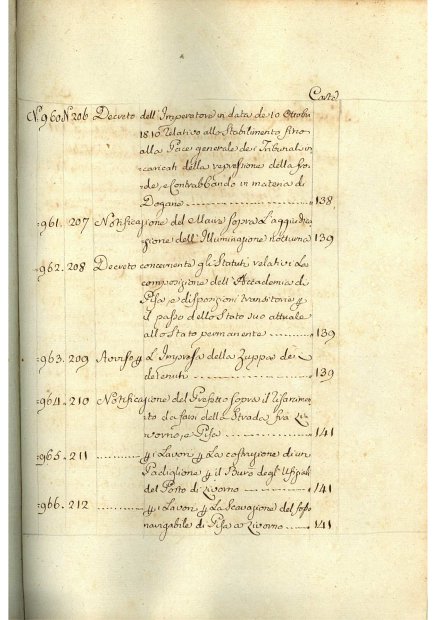 Carte
N. 960 N. 206 Decreto dell'Imperatore in data de 10 Ottobre
1810 Relativo allo Stabilimento fino
alla Pace generale dei Tribunali in
caricati della repressione della fro
de, e Contrabbando in materia di
Dogane 138
961. 207 Notificazione del Maire sopra l'aggiudica
zione dell'Illuminazione notturna 139
962. 208 Decreto concernente gli Statuti relativi La
composizione dell'Accademia di
Pisa, e disposizioni transitorie
il passo dello Stato suo attuale
allo Stato permanente 139
963. 209 Avviso L'Impresa della Zuppa dei
detenuti 139
964. 210 Notificazione del Prefetto sopra il Risarcimen
to da farsi della Strada frà Li
vorno, e Pisa 141
965. 211 i Lavori La costruzione di un
Padiglione il Buro degl'Uffiziali
del Porto di Livorno 141
966. 212 i Lavori La Scavazione del fosso
navigabile di Pisa a Livorno 141